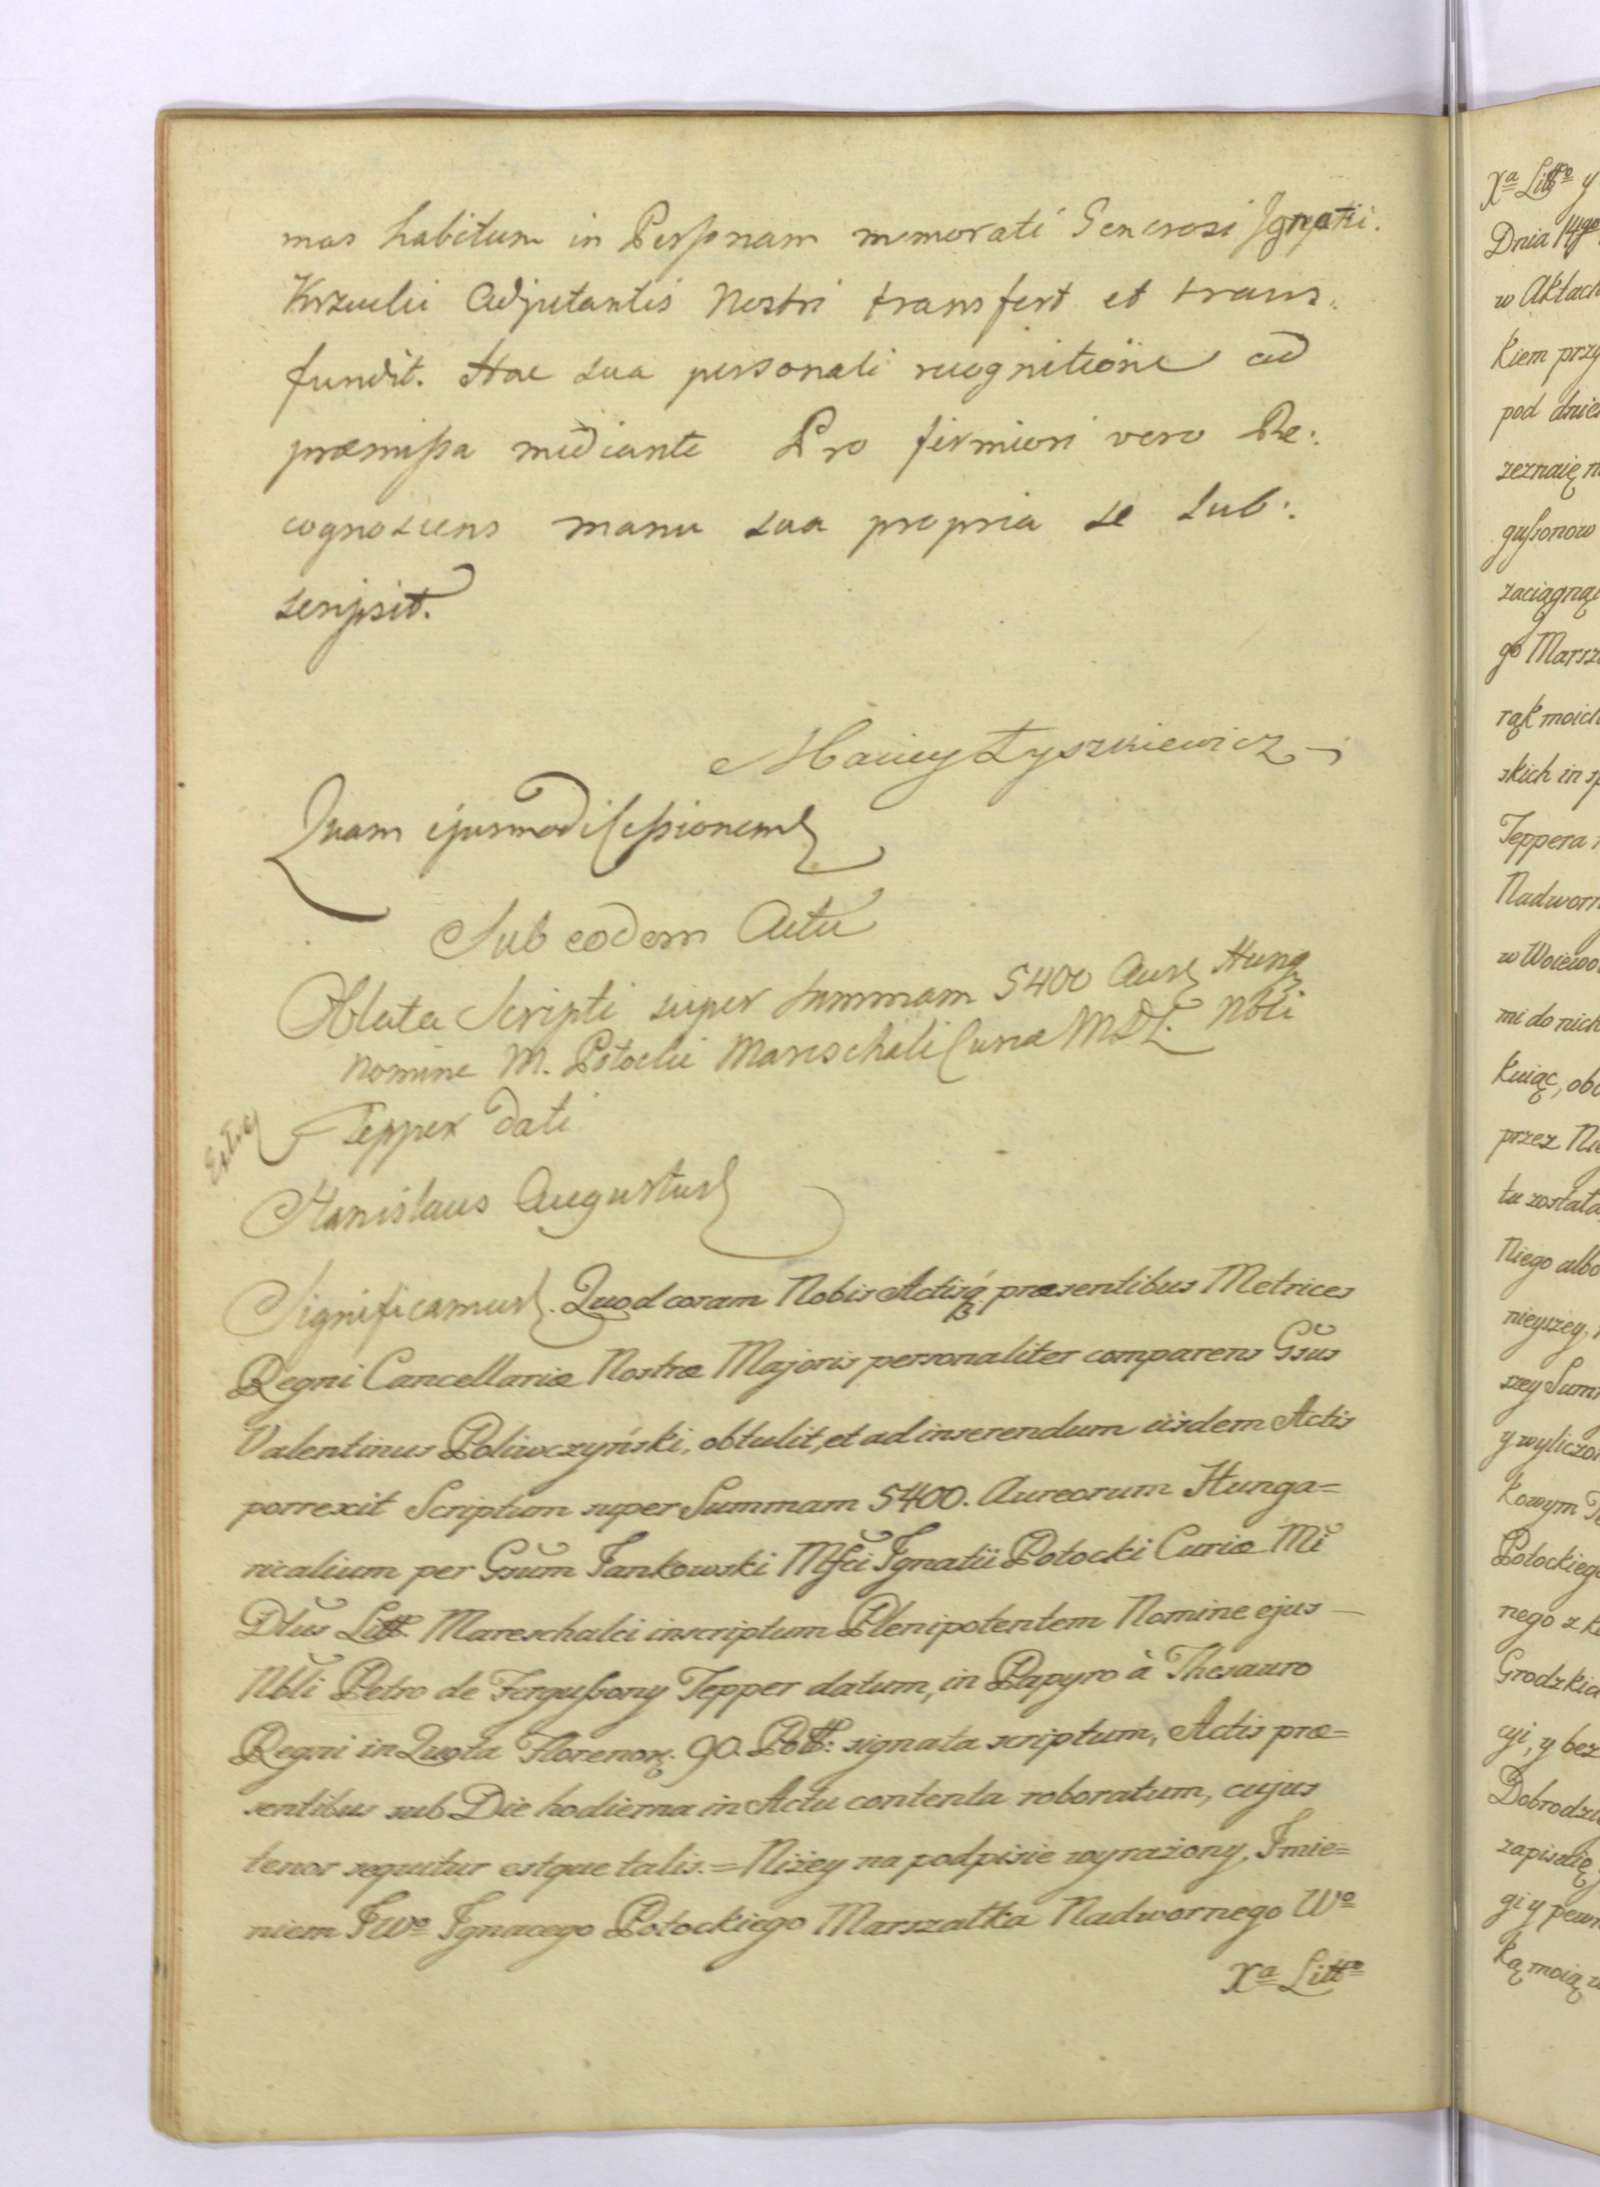 mas habitum in Personam memorati Generosi Ignatii
Krzucki Adjutantis Nostri transfert et trans:
fundit. Hac sua personali recognitione ad
præmissa mediante Pro firmiori vero Re:
cognoscens manu sua propria se sub:
scripsit.
Maciey Łyszkiewicz
Quam ejusmodi Cessionem
Sub eodem Actu
Oblata Scripti super summam 5400 Aur Hung
nomine M. Potocki Mareschali Curiæ MDL. Nbli
Tepper dati
Extrą
Stanislaus Augustus
Significamus. Quod coram Nobis Actisq præsentibus Metrices
Regni Cancellariæ Nostræ Majoris personaliter comparens Gsus
Valentinus Poliwczyński, obtulit, et ad inserendum iisdem Actis
porrexit Scriptum super Summam 5400. Aureorum Hunga=
ricalium per Gsum Jankowski Mfci Ignatii Potocki Curiæ Mi
Dtus Litt. Mareschalci inscriptum Plenipotentem Nomine ejus
Nbli Petro de Fergussony Tepper datum, in Papyro à Thesauro
Regni in Quota Florenor. 90. Poll: signata scriptum, Actis præ=
sentibus sub Die hodierna in Actu contenta roboratum, cujus
tenor sequitur estque talis.= Niżey na podpisie wyrażony, Imie=
niem JWo Ignacego Potockiego Marszałka Nadwornego Wo
Xa Litto
Xa Litto y
Dnia 14go
w Aktach
kiem przy
pod dnie
zeznaię
gussonow
zaciągnął
go Marsz
rąk moich
skich in
Teppera
Nadworn
w Woiewo
mi do nich
kuiąc, obo
przez
tu została
Niego albo
nieyszey,
szey Sum
y wyliczon
kowym
Potockieg
nego z
Grodzkic
cyi, y bez
Dobrodzi
zapisuię
gi y pewn
ką moią